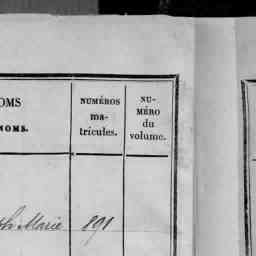 OMS
NOMS.
NUMÉROS
ma-
tricules.
NU-
MÉRO
du
volume.
ph Marie 891